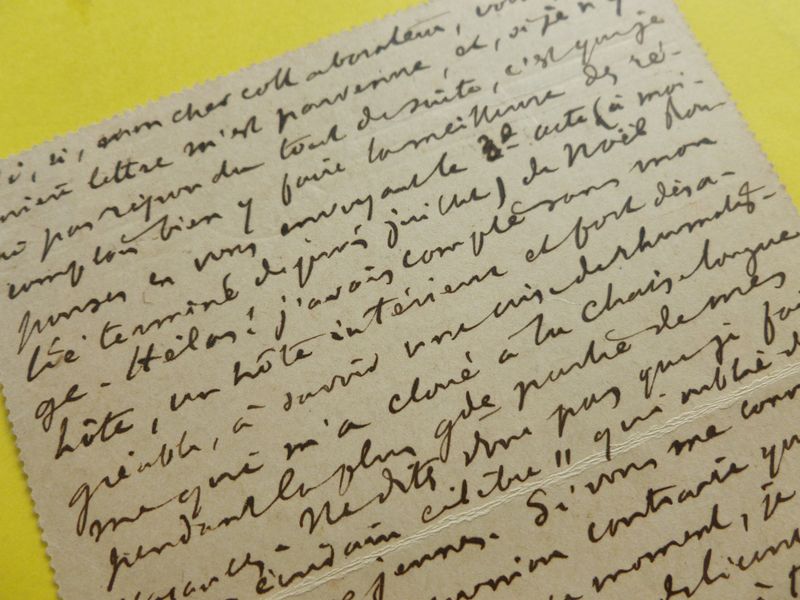 si, si, mon cher collaborateur, vo
lettre m'est parvenue, et, si je n'y
pas répondu tout de suite, c'est que je
comptais bien y faire la meilleure des ré-
ponses en vous envoyant le 3e acte (à moi-
tié terminé depuis juillet) de Noël Pour
ge. Hélas! j'avais compté sans mon
hôte, un hôte intérieur et fort désa-
gréable, à savoir une crise de rhumatis-
me qui m'a cloué à la chaise longue
pendant la plus gde partie de mes
vacances. Ne dites donc pas que je fai
écrivain célèbre" qui oublie d
jeunes. Si vous me conn
contraire qu
moment, je